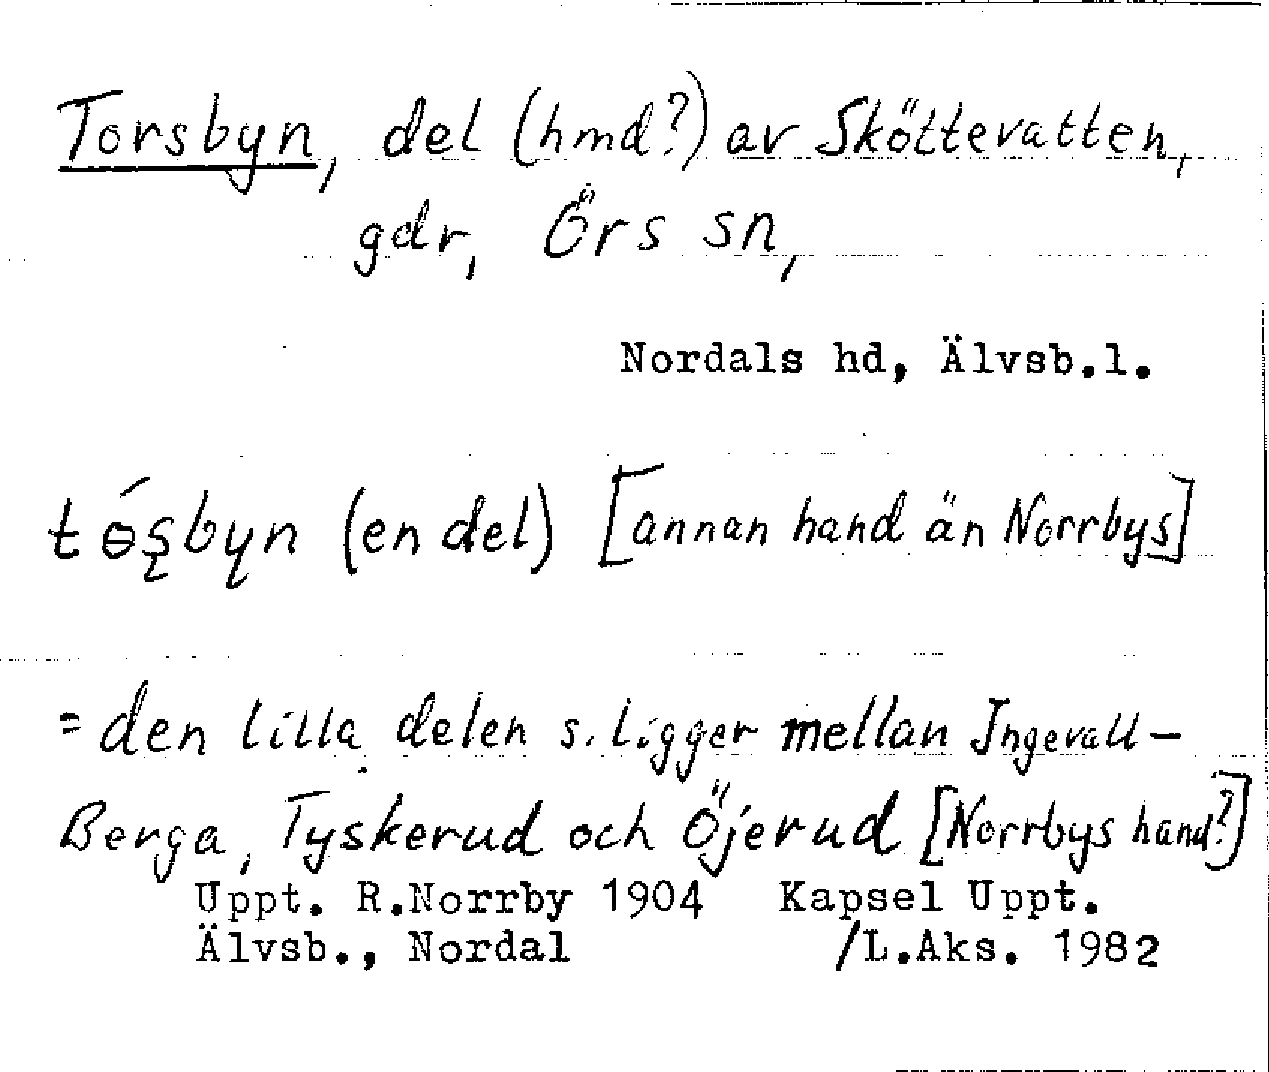 Torsbyn, del (hmd?) av Sköttevatten,
gdr, Örs sn,
Nordals hd, Älvsb.l.
tɵ́ʂbyn (en del) [annan hand än Norrbys]
= den lilla delen s. ligger mellan Ingevall-
Berga, Tyskerud och Öjerud [Norrbys hand?]
Uppt. R.Norrby 1904 Kapsel Uppt.
Älvsb., Nordal /L.Aks. 1982